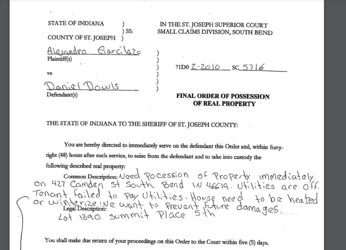 STATE OF INDIANA ) IN THE ST. JOSEPH SUPERIOR COURT
) SS: SMALL CLAIMS DIVISION, SOUTH BEND
COUNTY OF ST. JOSEPH )
Alejandro Garcilazo )
Plaintiff(s) ) 71D0 2-2010 SC 5716
vs )
Daniel Dowls )
Defendant(s) ) FINAL ORDER OF POSSESSION
OF REAL PROPERTY
THE STATE OF INDIANA TO THE SHERIFF OF ST. JOSEPH COUNTY:
You are hereby directed to immediately serve on the defendant this Order and, within forty-
eight (48) hours after such service, to seize from the defendant and to take into custody the
following described real property:
Common Description: Need Pocession of Property immediately
on 427 Camden St South Bend IN 46619. Utilities are off.
Tenant failed to Pay Utilities. House need to be heated
or winterize. We want to Prevent future damages...
Legal Description:
Lot 1390 Summit Place 5th
You shall make due return of your proceedings on this Order to the Court within five (5) days.